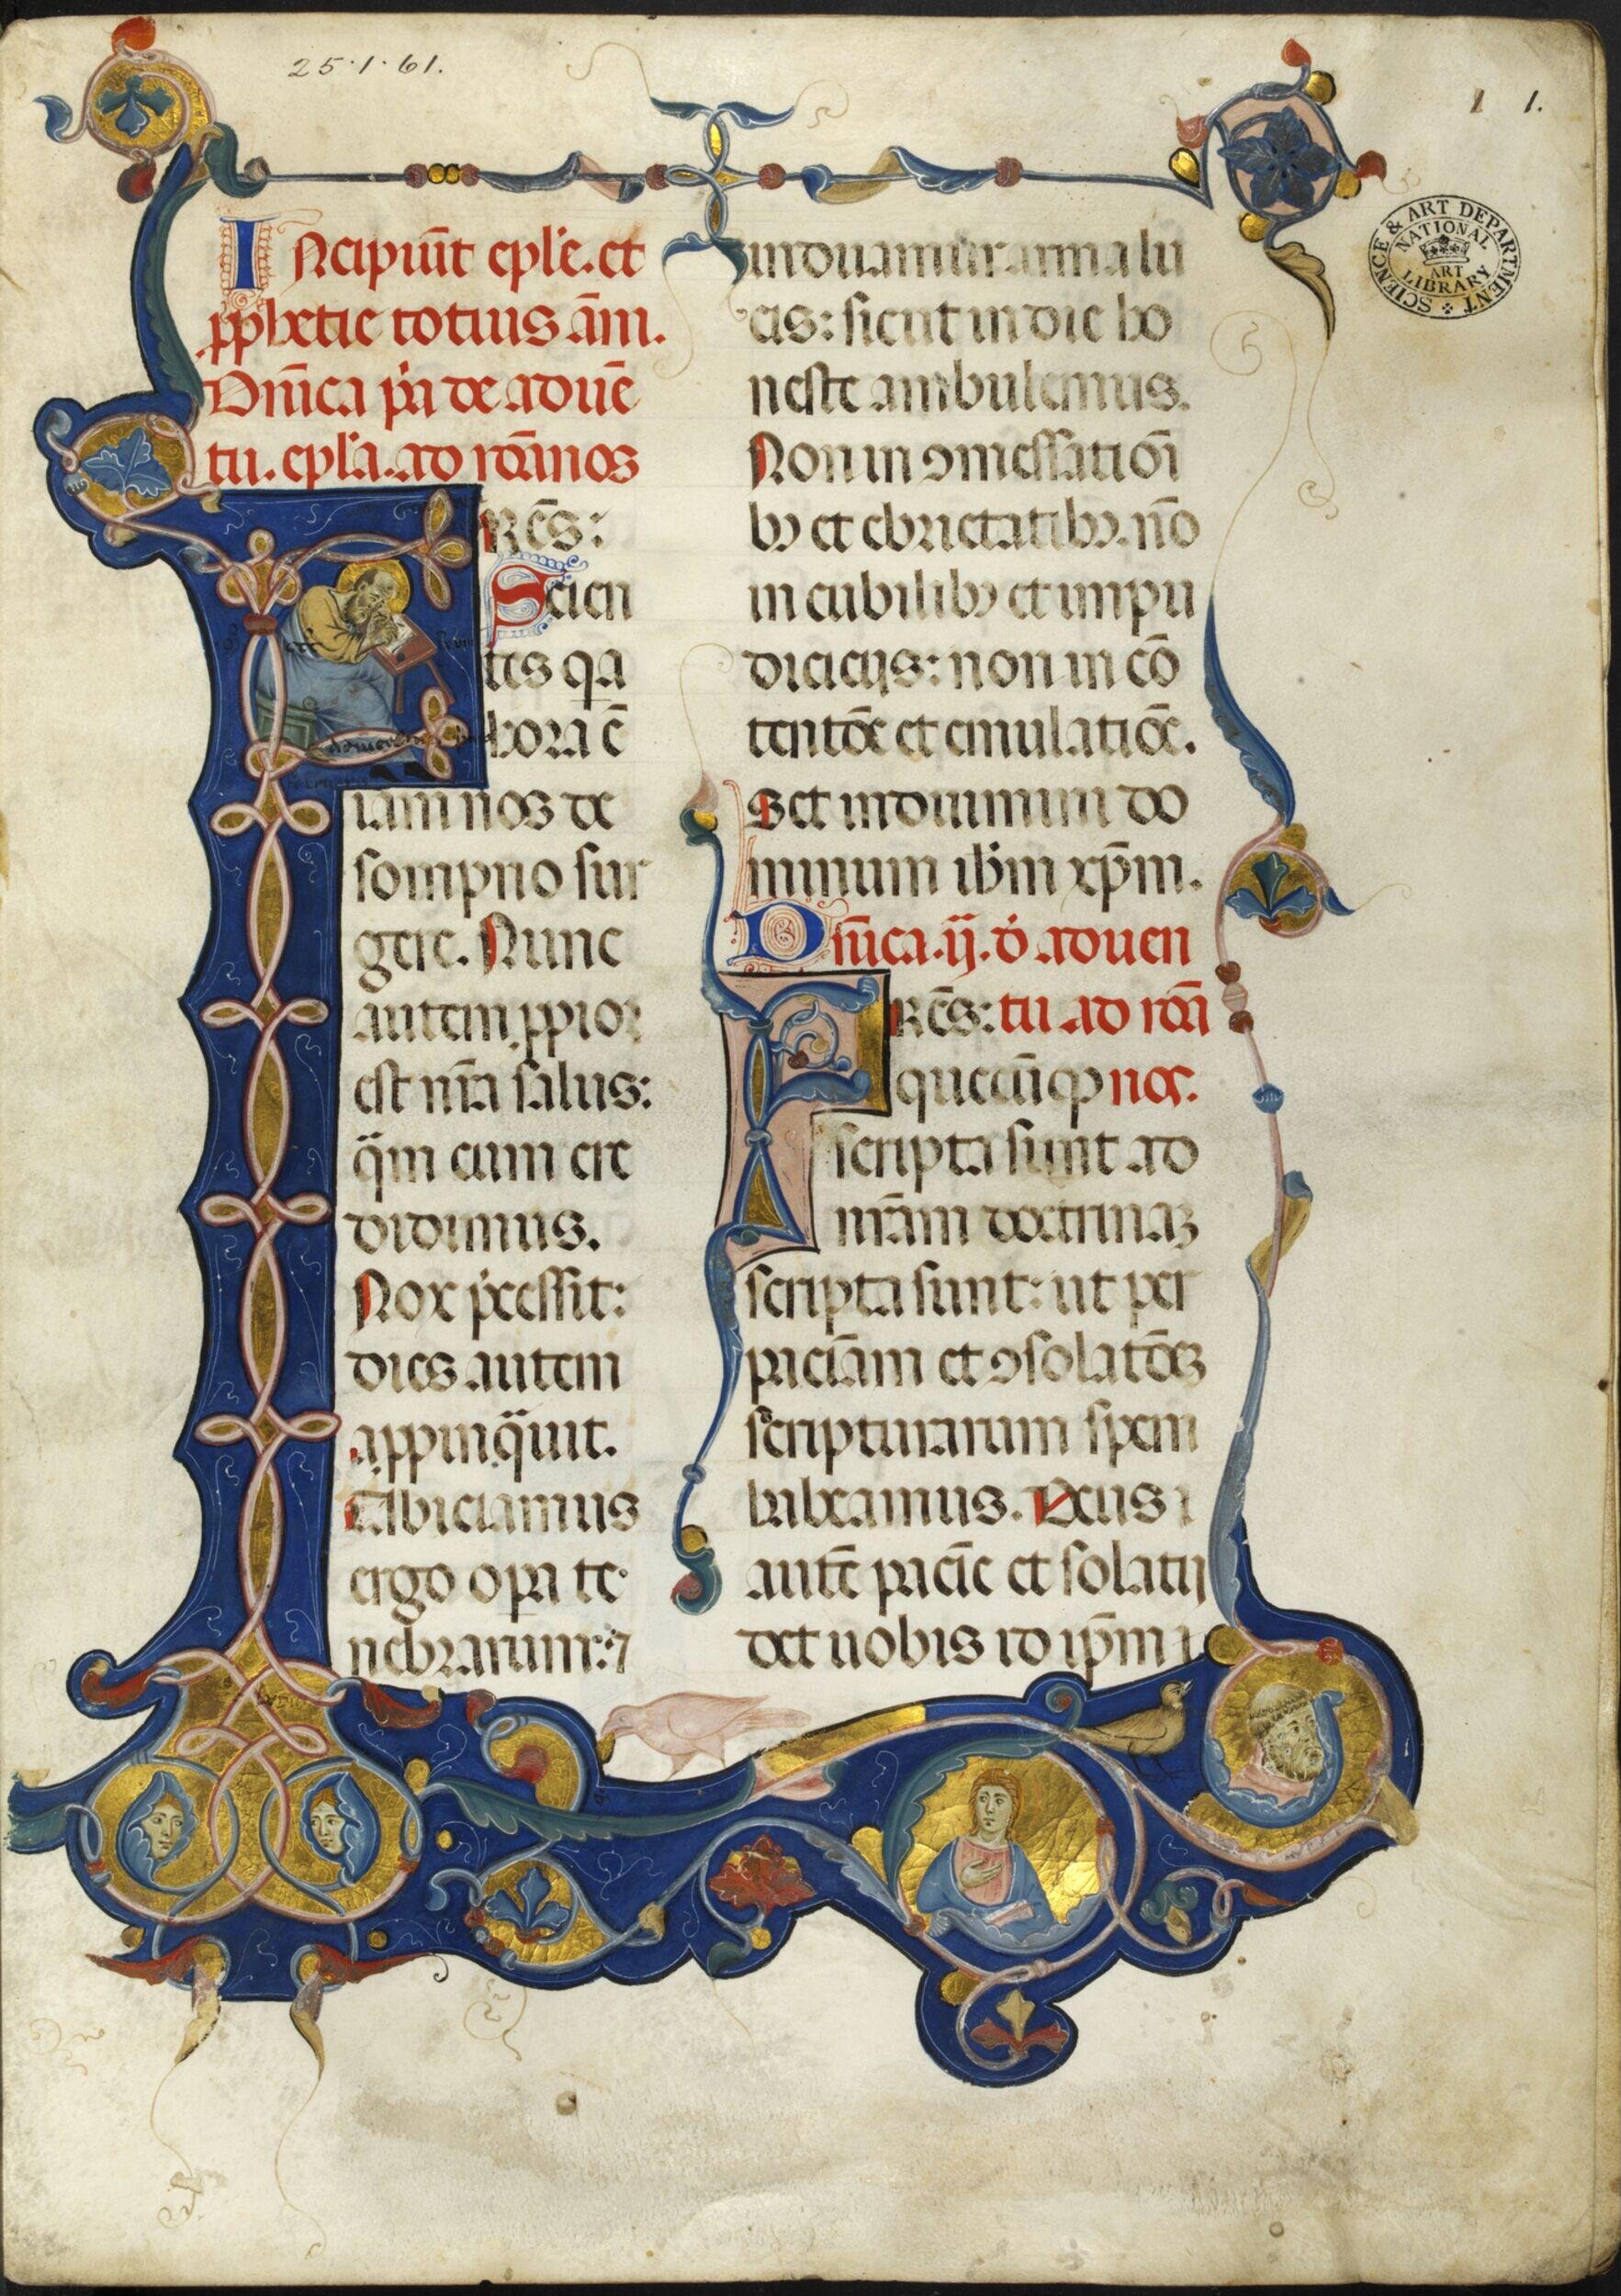 25·1·61.
1 1.
SCIENCE & ART DEPARTMENT
NATIONAL
ART
LIBRARY
INcipiūt eple. et
ꝓphetie totius ām.
Dn̄ica pͥa de aduē
tu. epl̄a. ad rōanos
FRēs:
Scien
tes qa
hora ē
iam nos de
sompno sur
gere. Nunc
autem ꝓpior
est nr̄a salus:
qͣm cum cre
didimus.
Nox p̄cessit:
dies autem
appinqͣuit.
Abiciamus
ergo opa te
nebrarum: ⁊
induamur arma lu
cis: sicut in die ho
neste ambulemus.
Non in ꝯmessatiōi
bꝫ et ebrietatibꝫ. nō
in cubilibꝫ et impu
diciciis: non in cō
tentōe et emulatiōe.
Set induimini do
minum ihm̄ xp̄m.
Dn̄ica. ij. d̓ aduen
FRēs: tu ad roā
quecūqꝫ nos.
scripta sunt ad
nr̄am doctrinaꝫ
scripta sunt: ut per
paciam et ꝯsolatōeꝫ
scripturarum spem
habeamus. Deus
autē pacīe et solatij
det uobis id ip̄m